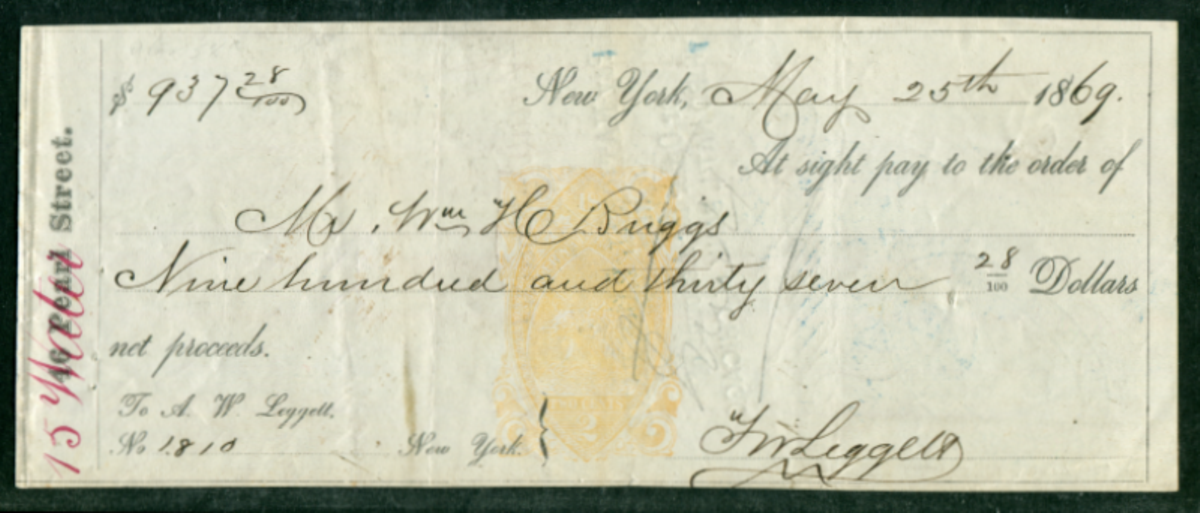 $ 937 28/100
New York, May 25th 1869.
At sight pay to the order of
Mr. Wm H Briggs
Nine hundred and thirty seven 28/100 Dollars
net proceeds.
To A. W. Leggett.
No 1810 New York.
F W Leggett
46 Pearl Street.
15 Water
2